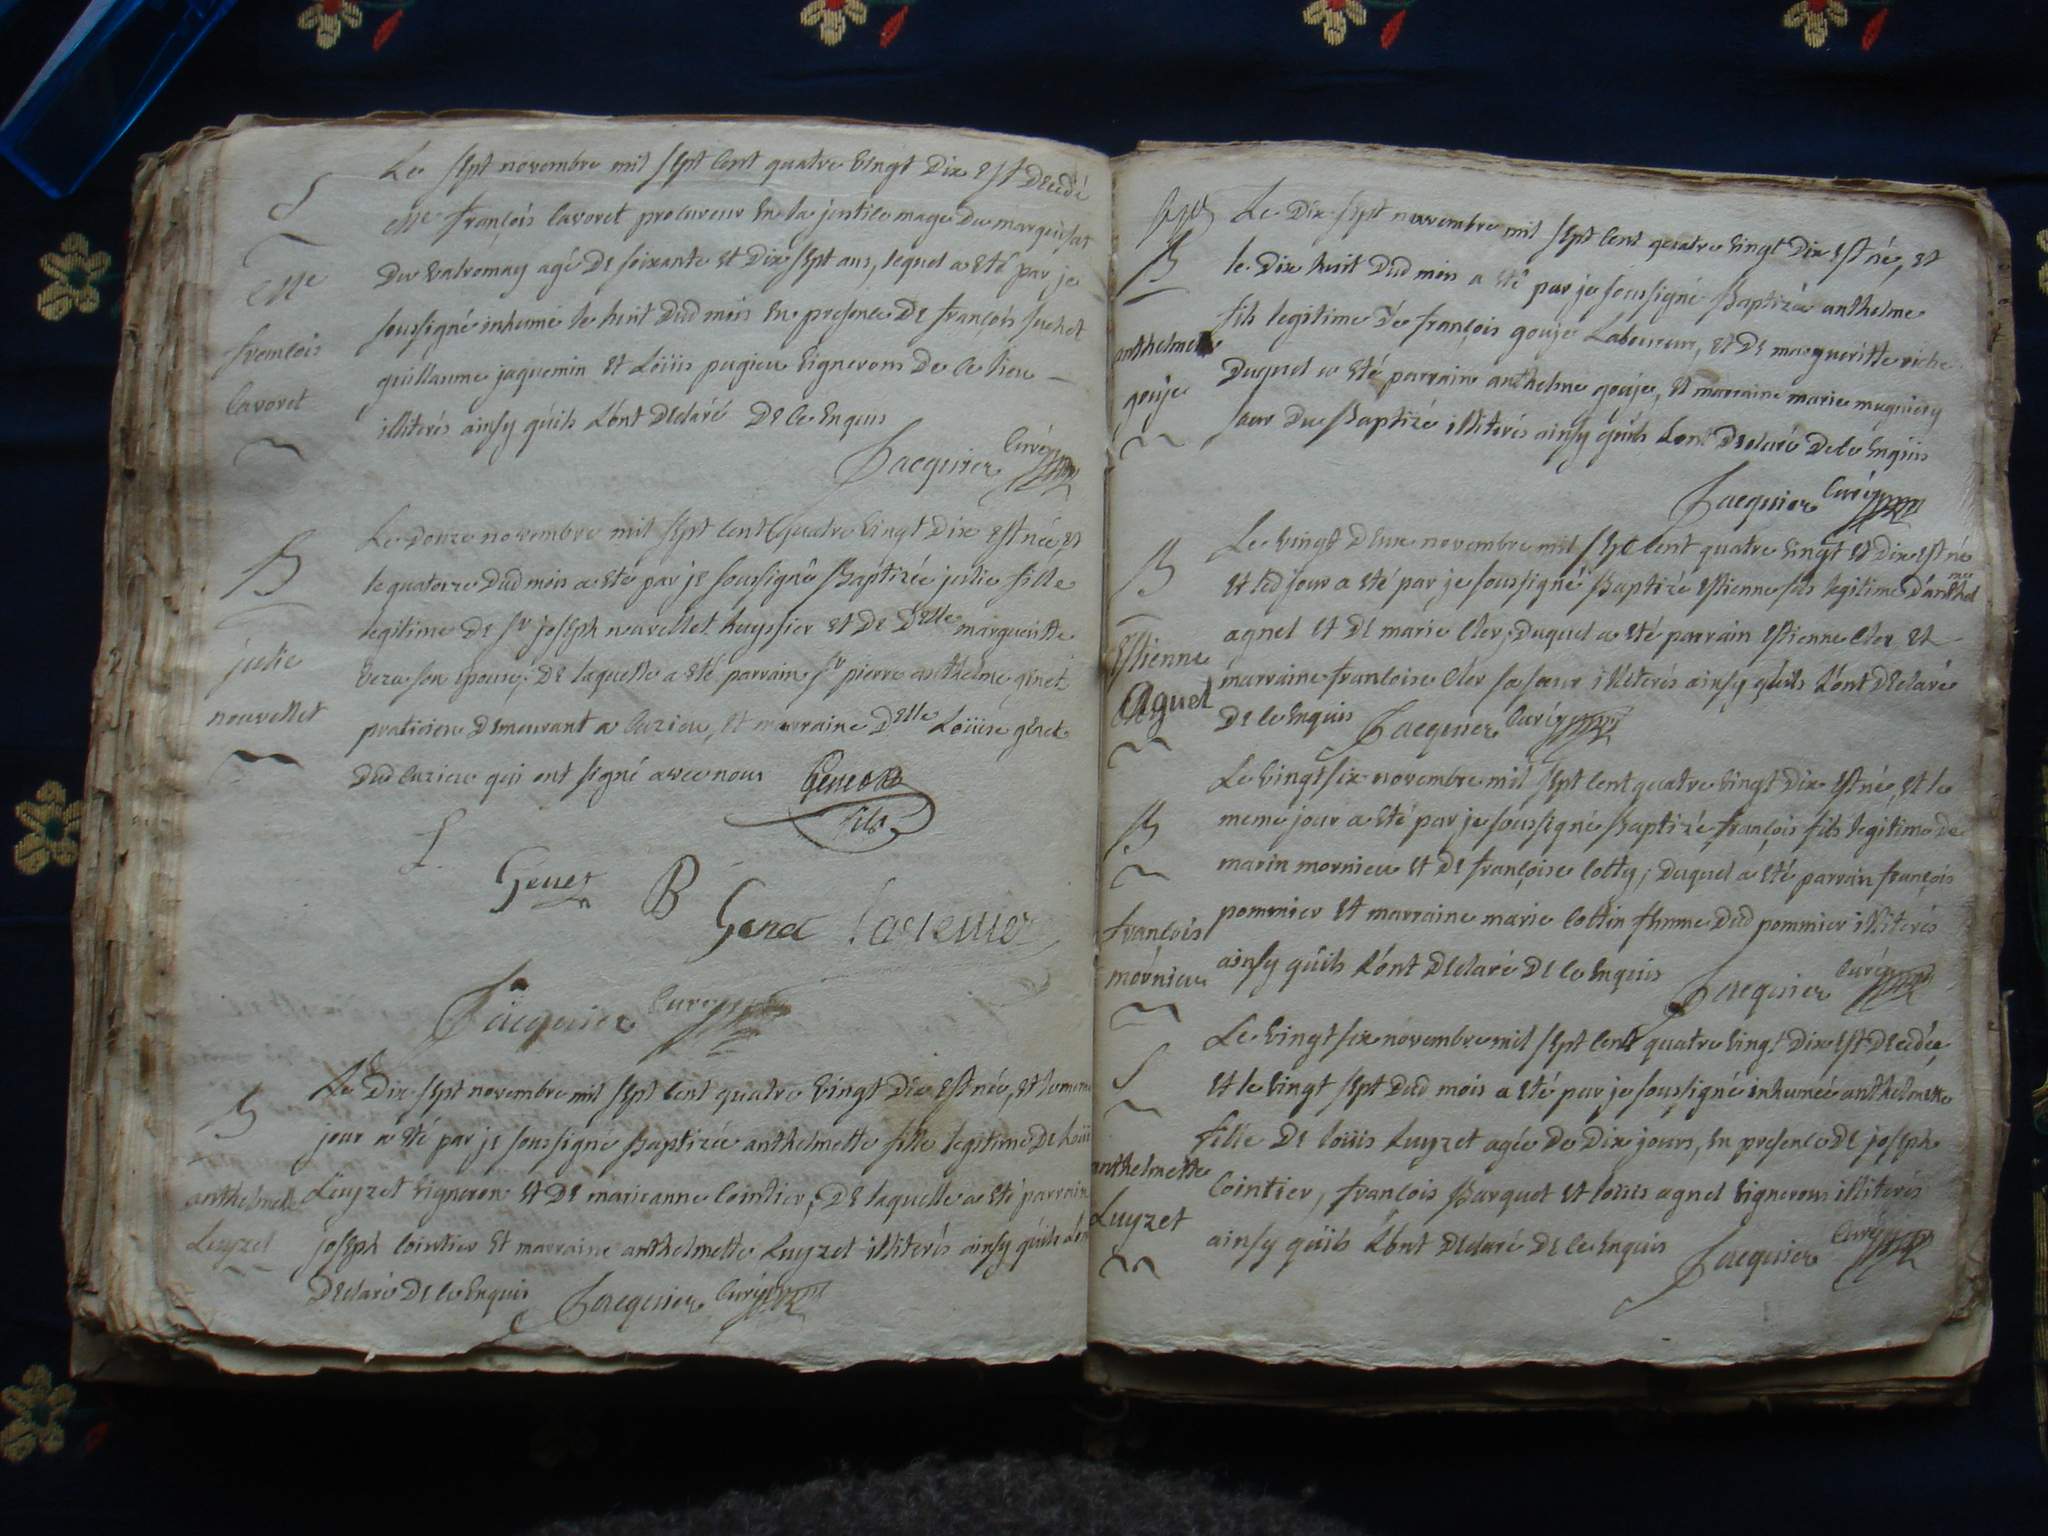 S
Me
françois
Cavoret
Le sept novembre mil sept cent quatre vingt Dix est Decedé
Me françois Cavoret procureur En la justice mage Du marquisat
Du valromay agé De soixante et Dix sept ans, lequel a eté par je
soussigné inhumé le huit Dud mois En presence De françois suchet
guillaume jaquemin et Loüis pugieu vignerons De ce lieu
illiterés ainsy qu'ils L'ont Declaré De ce Enquis
Jacquier Curé
B
julie
nouvellet
Le Douze novembre mil sept cent quatre vingt Dix est née et
le quatorze Dud mois a eté par je soussigné Baptizée julie fille
legitime De sr joseph nouvellet huyssier et De Delle margueritte
son epouse; De laquelle a eté parrain sr pierre anthelme genet
praticien Demeurant a Cuzieu, et marraine Delle Loüise genet
Dud Cuzieu qui ont signé avec nous
fils
Genet
B
Genet
Jacquier Curé
B
anthelmette
Luyzet
Le Dix sept novembre mil sept cent quatre vingt Dix est née, et le meme
jour a eté par je soussigné Baptizée anthelmette fille legitime De Loüis
Luyzet vigneron et De marieanne Cointier; De laquelle a eté parrain
joseph Cointier et marraine anthelmette Luyzet illiterés ainsy qu'ils L'ont
Declaré De ce Enquis Jacquier Curé
B
anthelme
gouje
Le Dix sept novembre mil sept cent quatre vingt Dix est né, et
le Dix huit Dud mois a eté par je soussigné Baptizé anthelme
fils legitime De françois gouje Laboureur, et De margueritte riche
Duquel a eté parrain anthelme gouje, et marraine marie mugniery
sœur Du Baptizé illiterés ainsy qu'ils L'ont Declaré De ce Enquis
Jacquier Curé
B
Estienne
Agnel
Le vingt Deux novembre mil sept cent quatre vingt et Dix est né
et led jour a eté par je soussigné Baptizé Estienne fils legitime D'anthelme
agnel et De marie Cler; Duquel a eté parrain Estienne Cler et
marraine francoise Cler sa sœur illiterés ainsy qu'ils L'ont Declaré
De ce Enquis Jacquier Curé
B
françois
mornieu
Le vingt six novembre mil sept cent quatre vingt Dix est né, et le
meme jour a eté par je soussigné Baptizé françois fils legitime De
marin mornieu et De françoise Cotty; Duquel a eté parrain françois
pommier et marraine marie Cottin femme Dud pommier illiterés
ainsy qu'ils L'ont Declaré De ce Enquis Jacquier Curé
S
anthelmette
Luyzet
Le vingt six novembre mil sept cent quatre vingt Dix est Decedée
et le vingt sept Dud mois a eté par je soussigné inhumée anthelmette
fille De Loüis Luyzet agée De Dix jours, En presence De joseph
Cointier, françois Barquet et Loüis agnel vignerons illiterés
ainsy qu'ils L'ont Declaré De ce Enquis Jacquier Curé